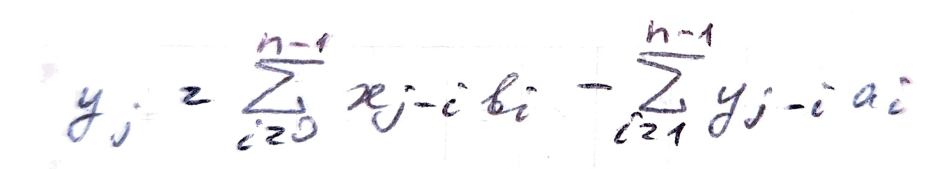 y_j = \sum_{i=0}^{n-1} x_{j-i} b_i - \sum_{i=1}^{n-1} y_{j-i} a_i